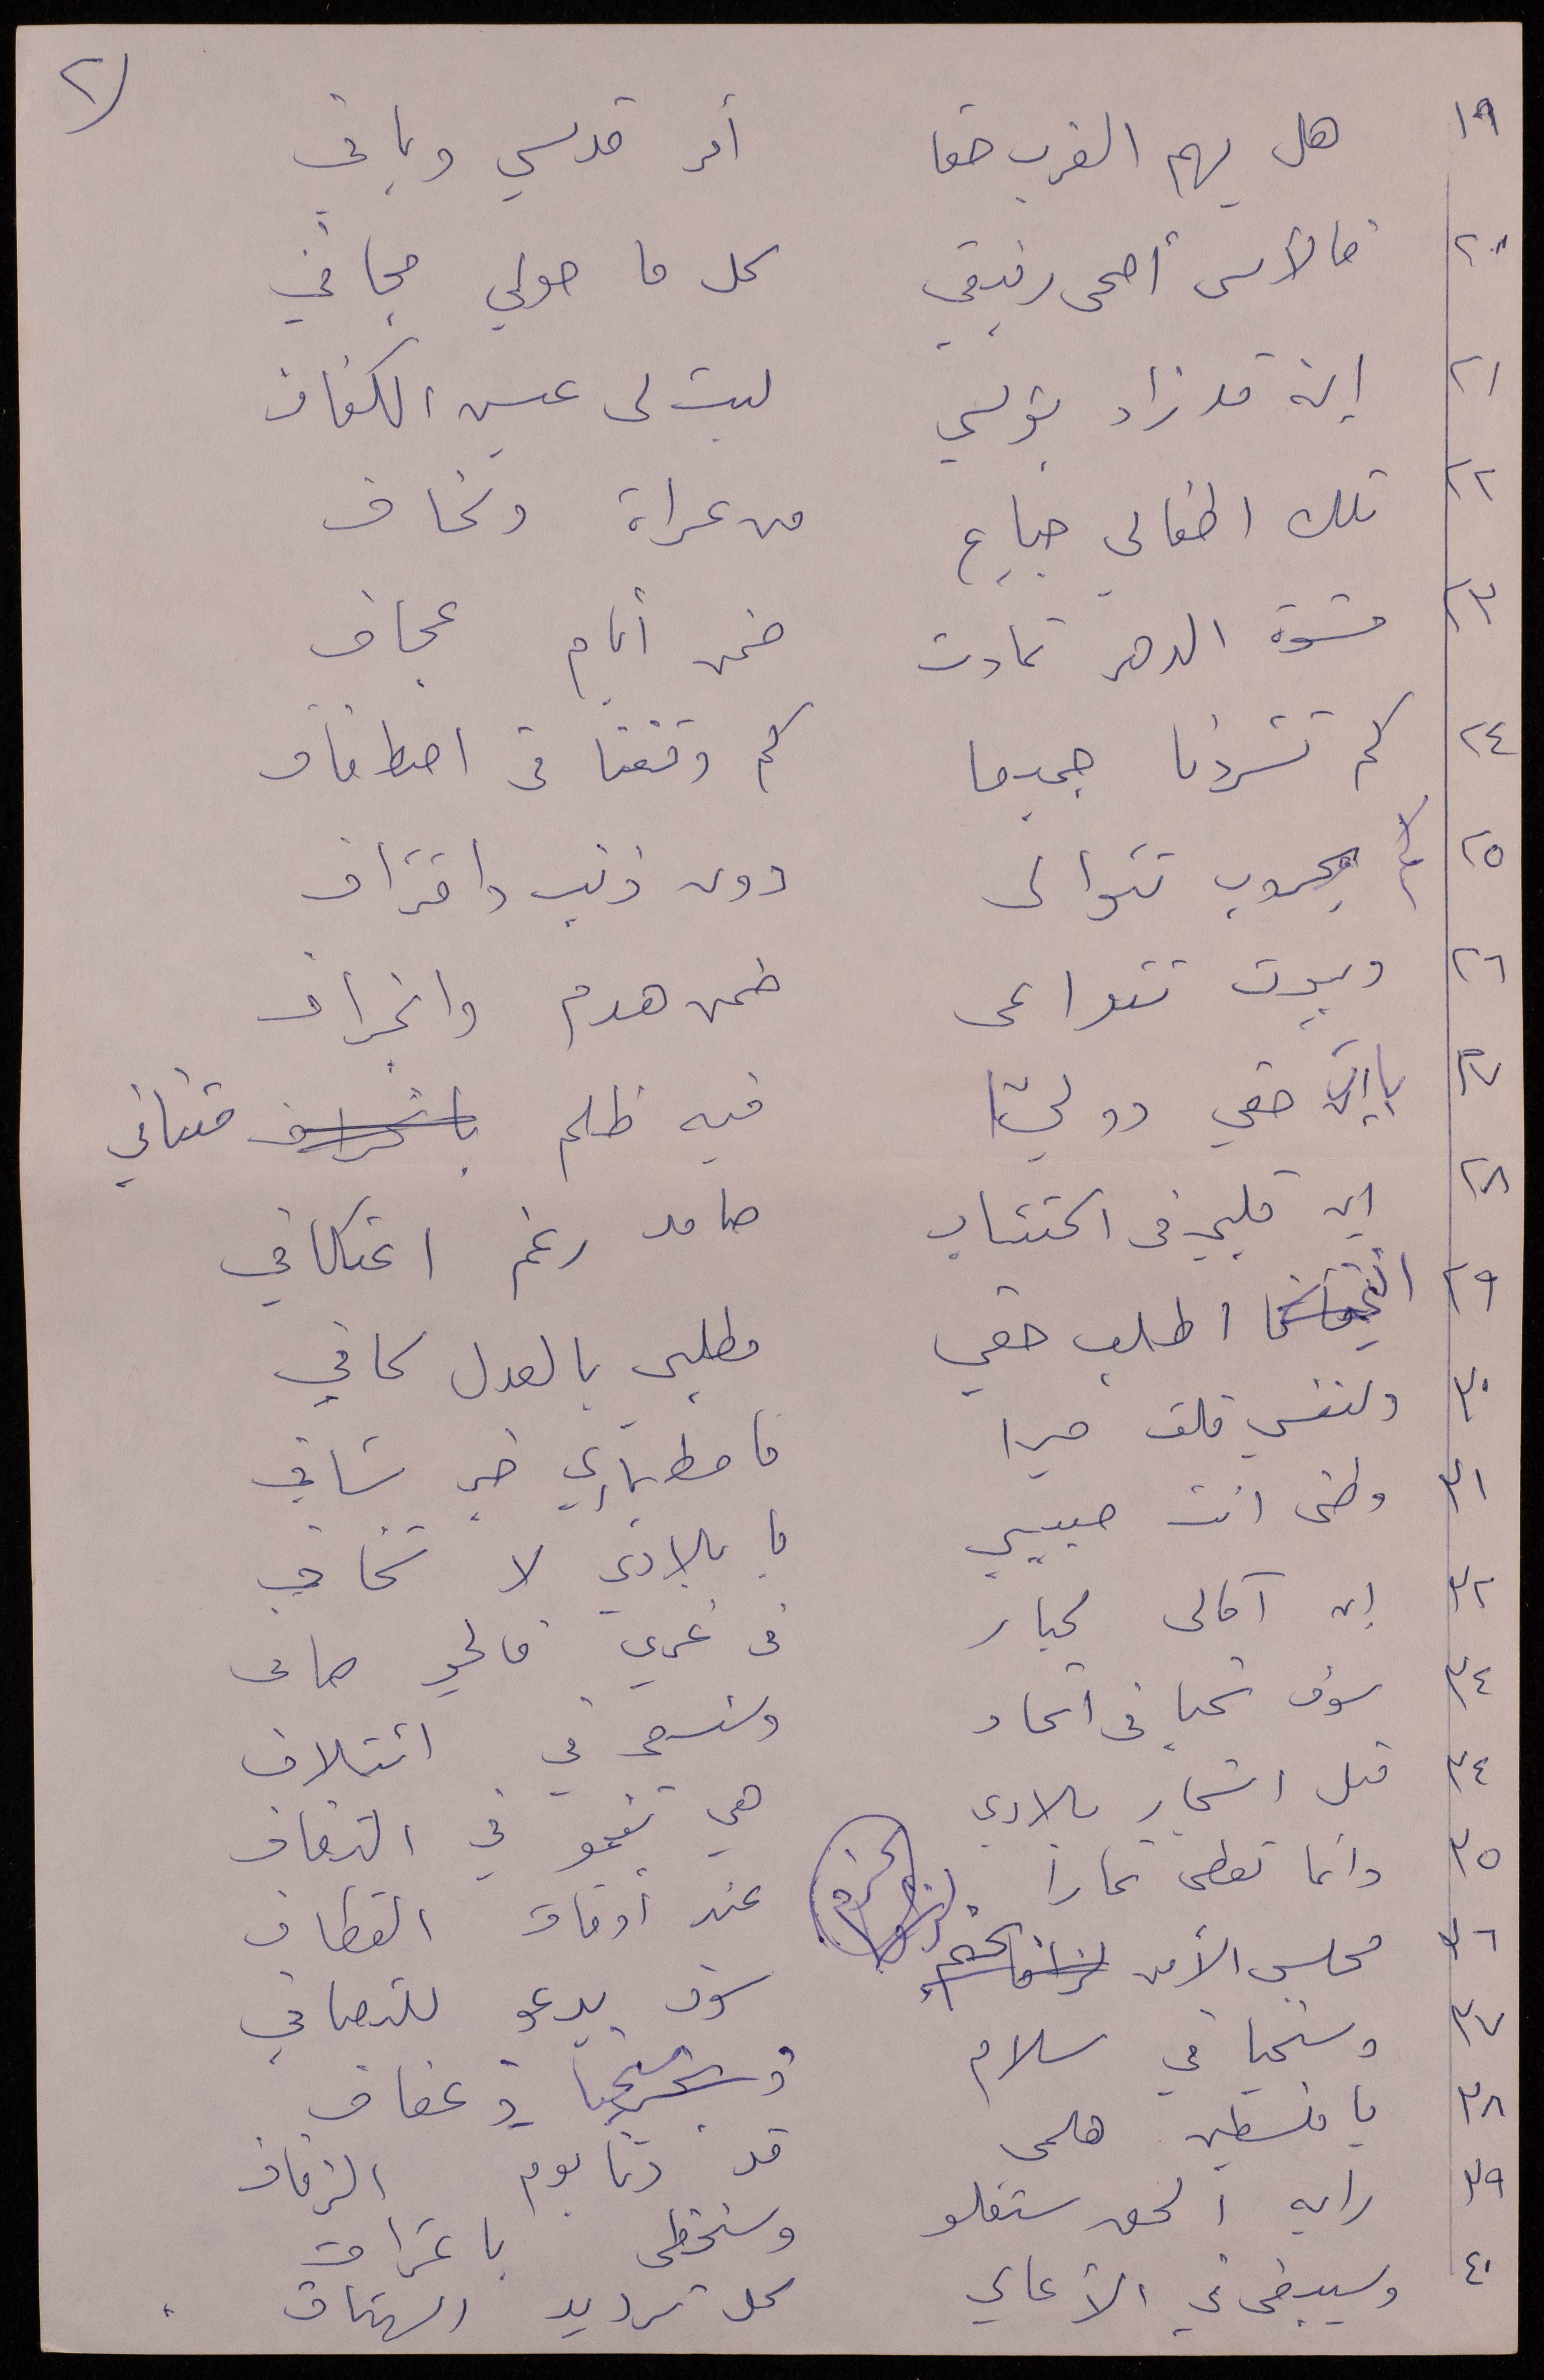 ٢)
١٩ هل يهم الغرب حقا أمر قدسي ويافي
٢٠ فالأسى أضحى رفيقي كل ما حولي مجافي
٢١ إنه قد زاد بؤسي ليت لى عيس الكفاف
٢٢ تلك اطفالي جياع من عراة ونحاف
٢٣ قسوة الدهر تمادت ضمن أيام عجاف
٢٤ كم تشردنا جميعا كم وقفنا فى اصطفاف
٢٥ كم حروب تتوالى دون ذنب واقتراف
٢٦ وبيوت تتداعى ضمن هدم وانجراف
٢٧ يا حقي دوليّا فيه ظلم بانحراف
٢٨ إن قلبي فى اكتئاب صامد رغم اعتكافي
٢٩ اطلب حقي مطلبى بالعدل كافي
٣٠ ولنفسي قلت صبرا فاصطباري خير شافي
٣١ وطنى انت حبيبي يا بلادي لا تخافي
٣٢ إن آمالى كبار فى غدي فالجو صافى
٣٤ سوف نحيا فى اتحاد وسنسعى في ائتلاف
٣٤ مثل اشجار بلادي هي تنمو في التفاف
٣٥ دائما تعطى ثمارا عند أوقات القطاف
٣٦ مجلس الأمن سوف يدعو للتصافي
٣٧ وسنحيا في سلام وسنحيا في عفاف
٣٨ يا فلسطين هلمى قد دنا يوم الزفاف
٣٩ راية الحق ستعلو وسنحظى باعتراف
٤٠ وسيبقى في الأعالي كل ترديد الهتاف .